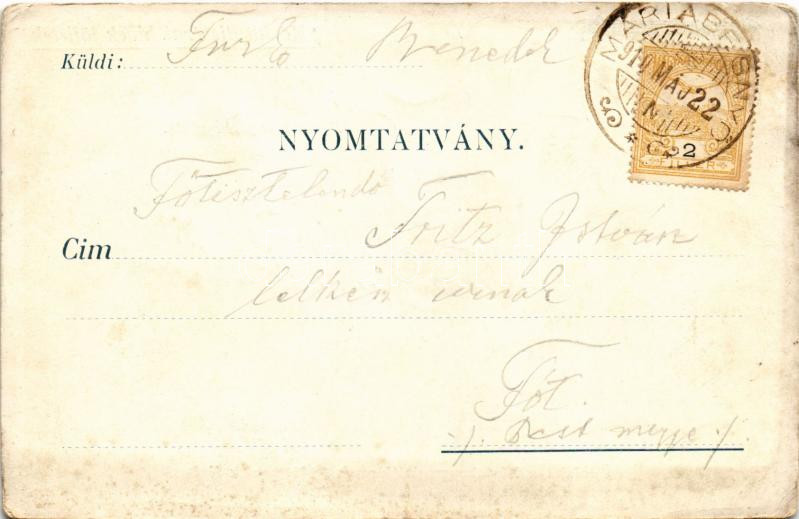 Küldi: Benedek
MÁRIABESNYŐ
910 MÁJ 22
N
2
FILLÉR
NYOMTATVÁNY.
Főtisztelendő
Cim Fritz István
lelkész urnak
Fót.
./. Pest megye ./.